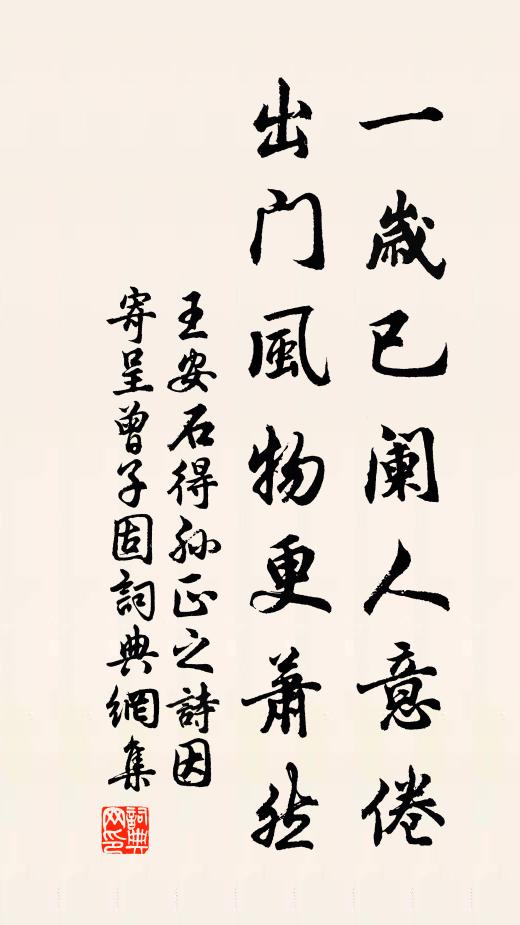 一歲已阑人意倦
出门風物更蕭然
王安石得孫正之詩因
寄呈曾子固詞典網集
詞典網印